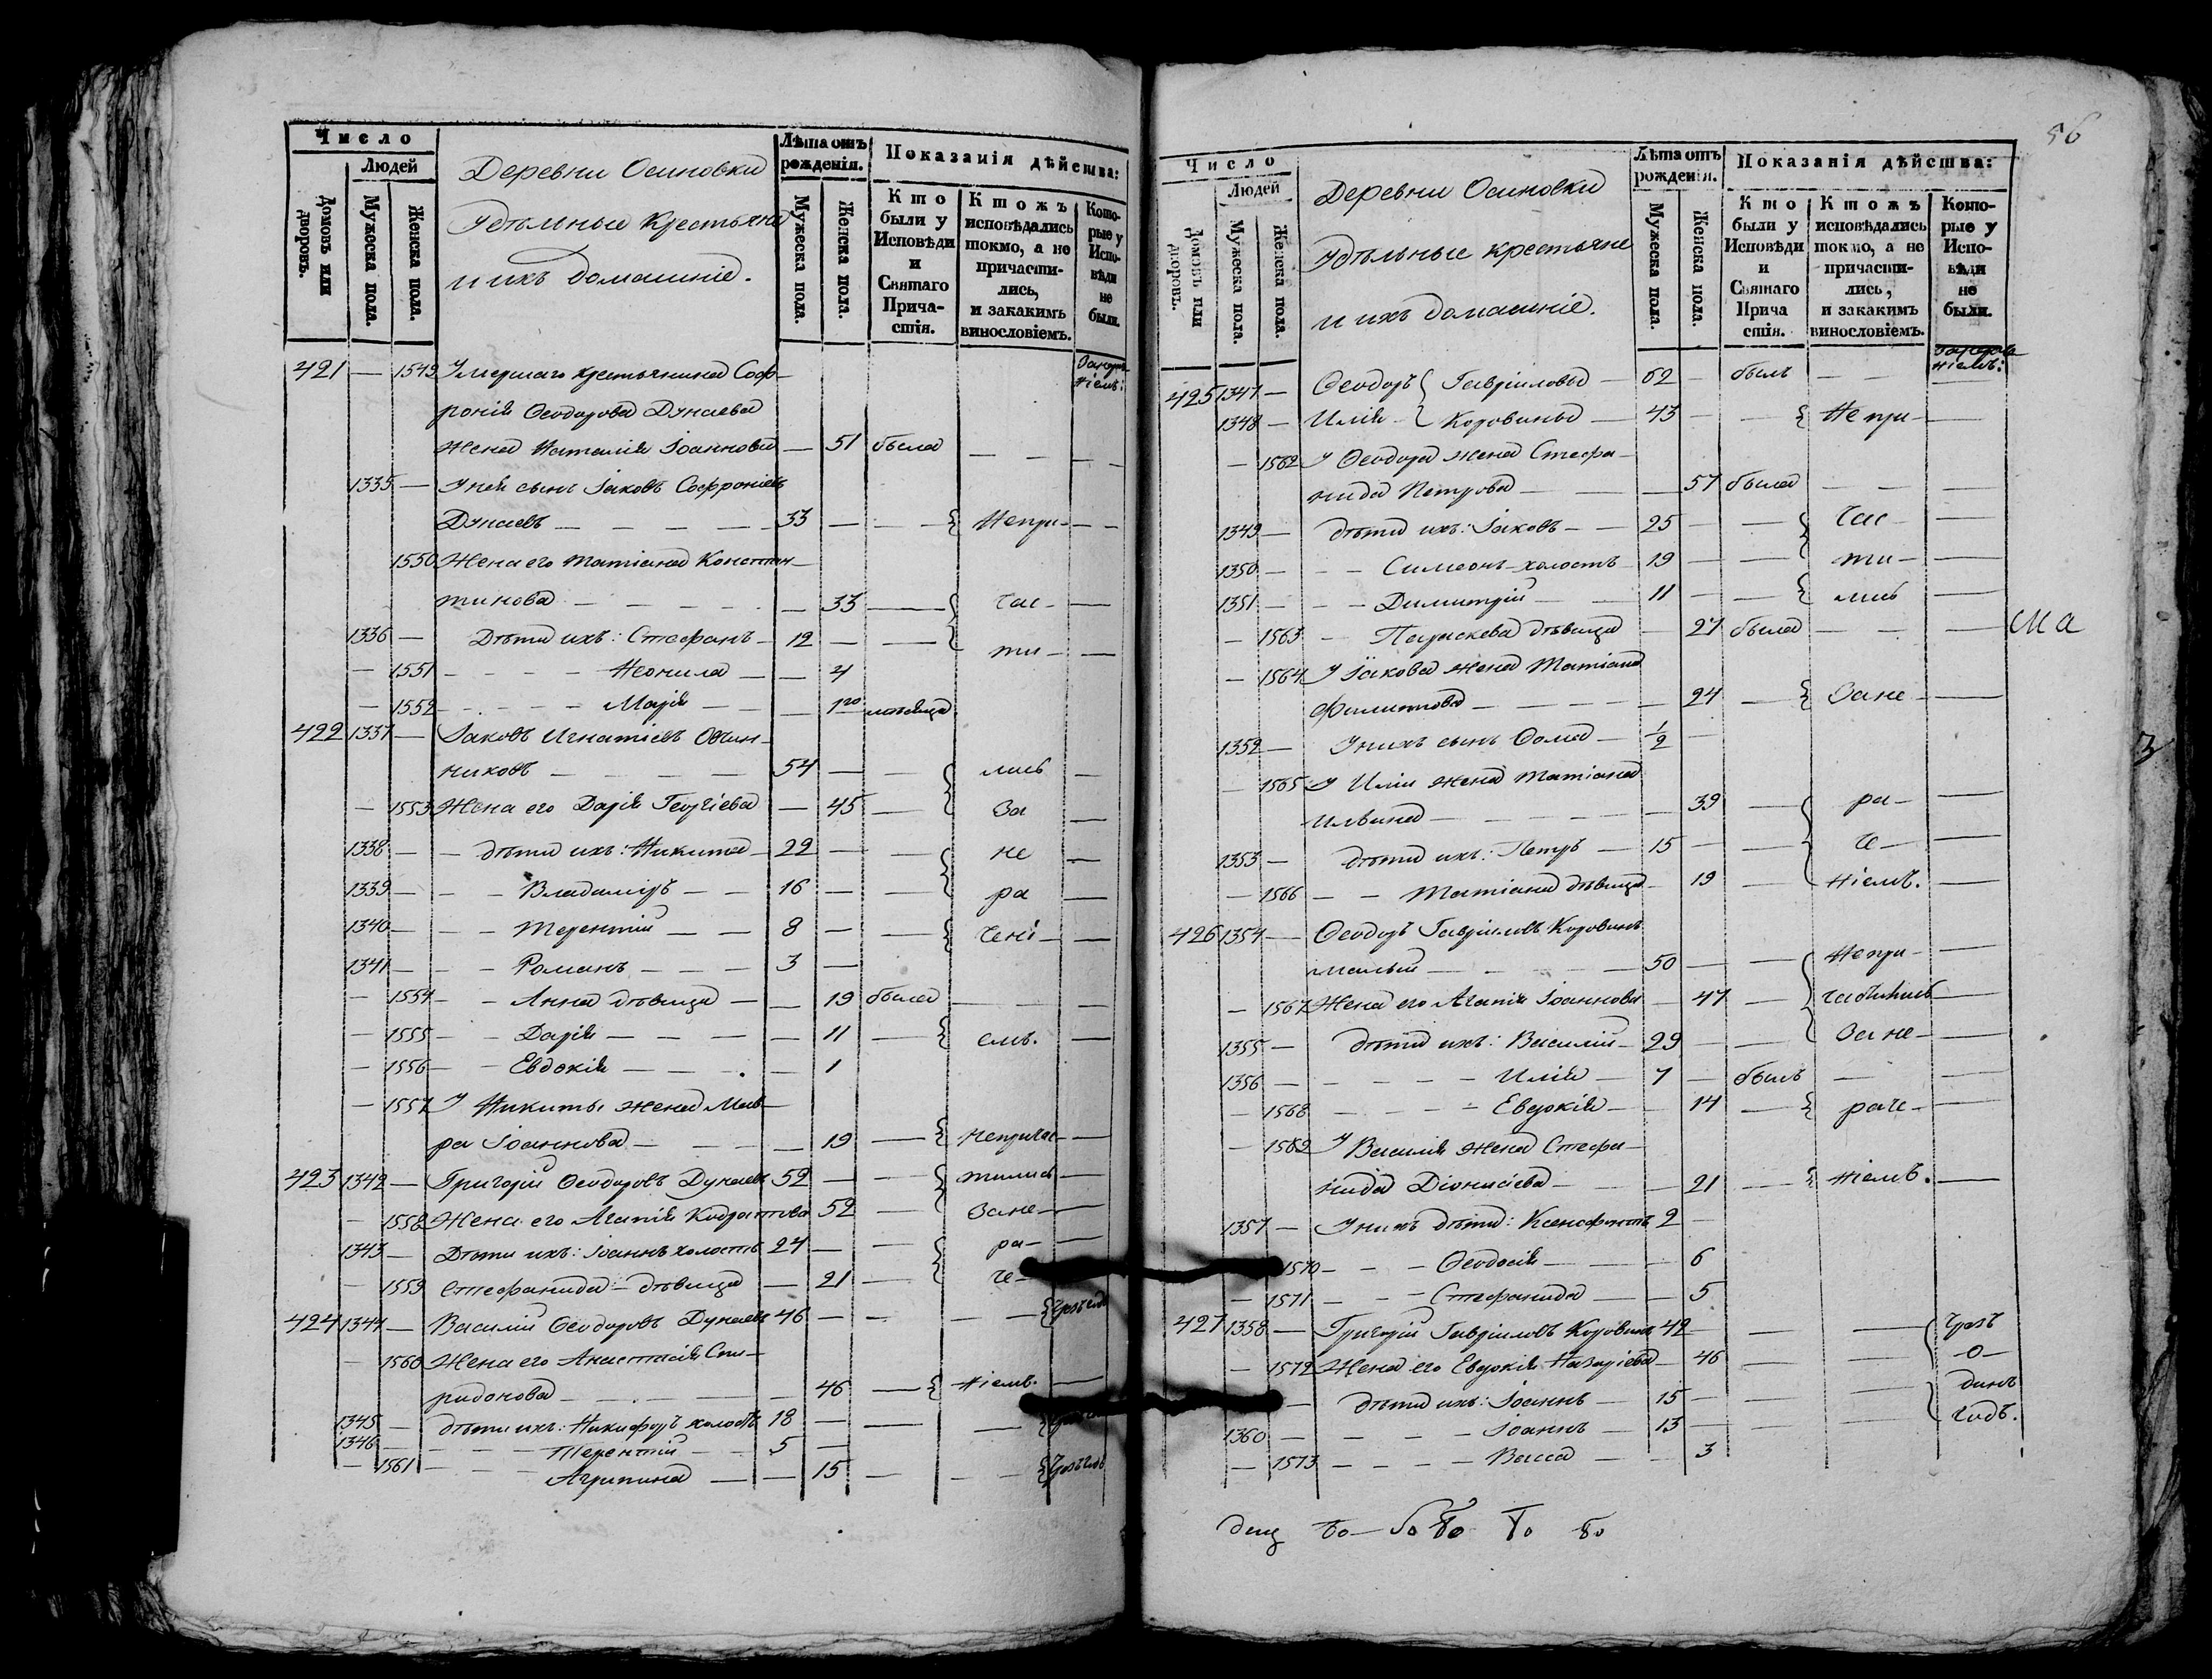 Число
Людей
Домовъ или дворовъ.
Мужеска пола.
Женска пола.
Деревни Осиновки
Удѣльные крестьяне
и ихъ домашніе.
Лѣта отъ рожденія.
Мужеска пола.
Женска пола.
Показанія дѣйства:
Кто были у Исповѣди и Святаго Причастія.
Ктожъ исповѣдались токмо, а не причастились, и закакимъ винословіемъ.
Которые у Исповѣди не были.
421 — 1549 Умершаго крестьянина Соф-
ронія Ѳеодорова Дунаева
жена Наталія Іоаннова — 51 была — — — —
1335 — У ней сынъ Іаковъ Софроніевъ
Дунаевъ — — — — 33 — — Непри- — —
1550 Жена его Татіана Констан-
тинова — — — — — 33 — час- —
1336 — Дѣти ихъ: Стефанъ — 12 — — ти- —
— 1551 — — — — Неонила — — 4
— 1552 — — — — Марія — — — 1го мѣсяца
422 1337 — Іаковъ Игнатіевъ Овчин-
никовъ — — — — 54 — — лись —
— 1553 Жена его Дарія Георгіева — 45 — За —
1338 — — дѣти ихъ: Никита — 22 — — не —
1339 — — — Владиміръ — — 16 — — ра —
1340 — — — Терентій — — 8 — — чені- —
1341 — — — Романъ — — — 3 —
— 1554 — — Анна дѣвица — — 19 была — — —
— 1555 — — Дарія — — — — 11 — емъ. —
— 1556 — — Евдокія — — — . — 1
— 1557 У Никиты жена Мав-
ра Іоаннова — — — — 19 — непричас- —
423 1342 — Григорій Ѳеодоровъ Дунаевъ 52 — — тились —
— 1558 Жена его Агапія Кодратова 52 — Зане- —
1343 — Дѣти ихъ: Іоаннъ холостъ 24 — — ра- —
— 1559 Стефанида — дѣвица — 21 — че-
424 1344 — Василій Ѳеодоровъ Дунаевъ 46 — — —
— 1560 Жена его Анастасія Спи-
ридонова — — — — 46 — ніемъ. —
1345 — дѣти ихъ: Никифоръ холостъ 18 — — —
1346 — — — — Терентій — — 5 —
— 1561 — — — Агрипина — — 15 — — —
56
Число
Людей
Домовъ или дворовъ.
Мужеска пола.
Женска пола.
Деревни Осиновки
Удѣльные крестьяне
и ихъ домашніе.
Лѣта отъ рожденія.
Мужеска пола.
Женска пола.
Показанія дѣйства:
Кто были у Исповѣди и Святаго Причастія.
Ктожъ исповѣдались токмо, а не причастились, и закакимъ винословіемъ.
Которые у Исповѣди не были.
425 1347 — Ѳеодоръ Гавріиловы — 62 — былъ — — —
1348 — Илія Коровины — 43 — — Непри- —
— 1562 У Ѳеодора жена Стефа-
нида Петрова — — — 57 была — — —
1349 — дѣти ихъ: Іаковъ — — 25 — — час- —
1350 — — — Симеонъ — холостъ 19 — — ти- —
1351 — — — Димитрій — — 11 — — лись —
— 1563 — Параскева дѣвица — 27 была — — —
ма
— 1564 У Іакова жена Татіана
Филиппова — — — — 24 — Зане- —
1352 — У нихъ сынъ Ѳома — 1/2 —
— 1565 У Иліи жена Татіана
Ильина — — — — — 39 — ра- —
1353 — дѣти ихъ: Петръ — 15 — — че- —
— 1566 — — Татіана дѣвица — 19 — ніемъ. —
426 1354 — Ѳеодоръ Гавріиловъ Коровинъ
малый — — — — 50 — — Непри- —
— 1567 Жена его Агапія Іоаннова — 47 — —
1355 — дѣти ихъ: Василій — 29 — — Зане- —
1356 — — — — — Илія — 7 — былъ — —
— 1568 — — — — Евдокія — — 14 — раче- —
— 1569 У Василія жена Стефа-
нида Діонисіева — — — 21 — ніемъ. —
1357 — У нихъ дѣти: Ксенофонтъ 2 —
1570 — — — Ѳеодосія — — — 6
— 1571 — — Стефанида — — 5
427 1358 — Григорій Гавріиловъ Коровинъ 42 — — — Чрезъ
— 1572 Жена его Евдокія Назаріева — 46 — — -о-
— дѣти ихъ: Іоаннъ — 15 — — — динъ
1360 — — — — Іоаннъ — 13 — — — годъ.
— 1573 — — — — Васса — — 3